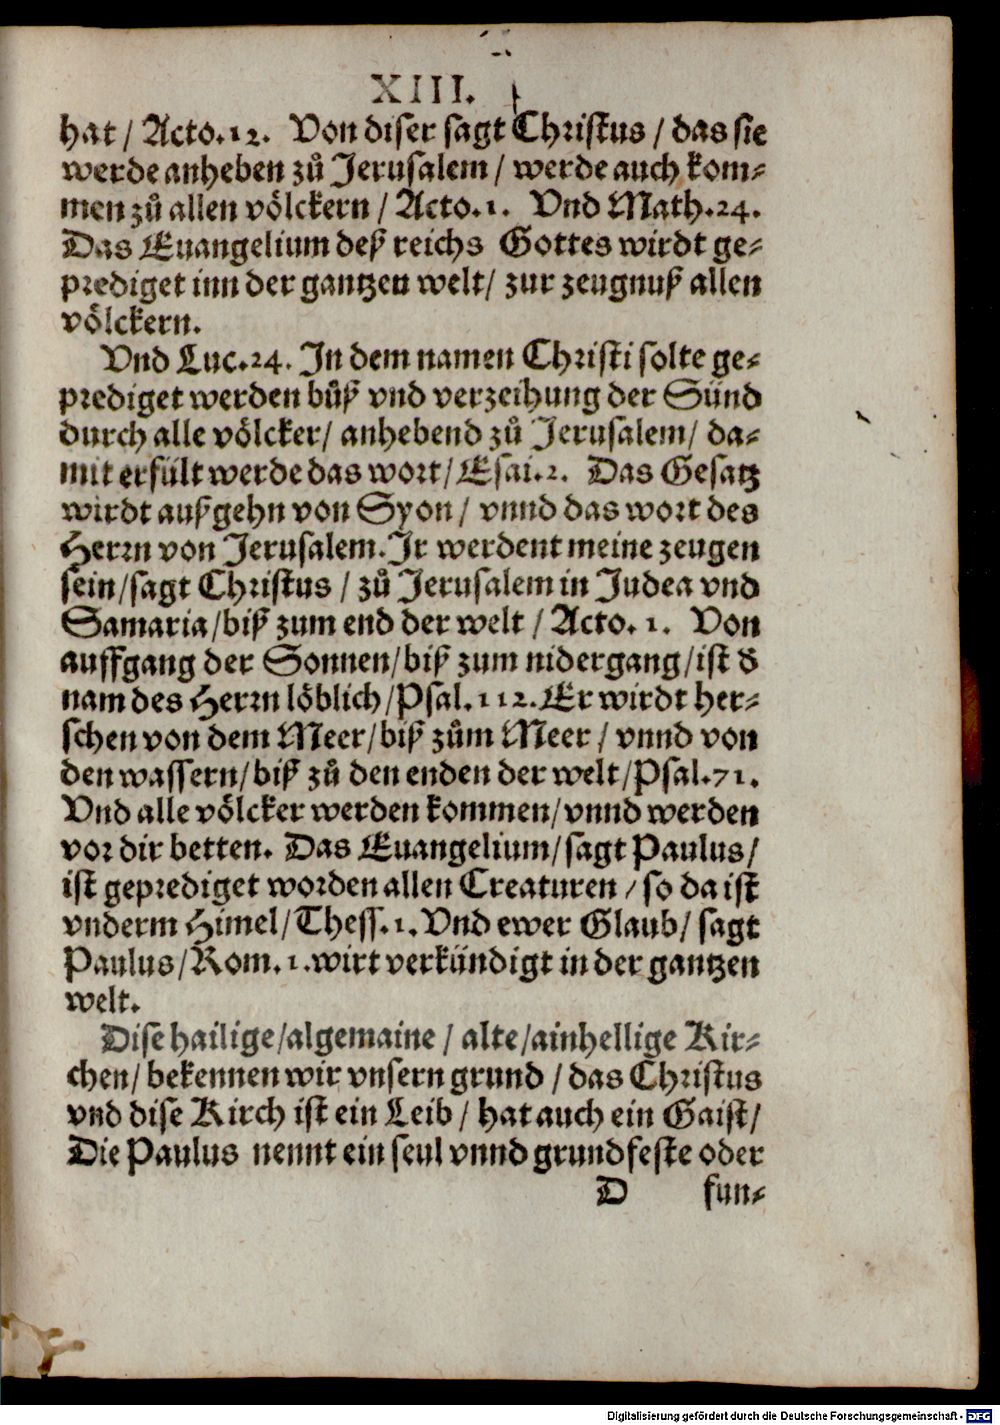 XIII.
hat / Acto.12. Von diser sagt Christus / das sie
werde anheben zů Jerusalem / werde auch kom-
men zů allen völckern / Acto.1. Vnd Math.24.
Das Euangelium deß reichs Gottes wirdt ge-
prediget inn der gantzen welt / zur zeugnuß allen
völckern.
Vnd Luc.24. In dem namen Christi solte ge-
prediget werden bůß vnd verzeihung der Sünd
durch alle völcker / anhebend zů Jerusalem / da-
mit erfült werde das wort / Esai.2. Das Gesatz
wirdt außgehn von Syon / vnnd das wort des
Herrn von Jerusalem. Ir werdent meine zeugen
sein / sagt Christus / zů Jerusalem in Judea vnd
Samaria / biß zum end der welt / Acto. 1. Von
auffgang der Sonnen / biß zum nidergang / ist d
nam des Herrn löblich / Psal.112. Er wirdt her-
schen von dem Meer / biß zům Meer / vnnd von
den wassern / biß zů den enden der welt / Psal.71.
Vnd alle völcker werden kommen / vnnd werden
vor dir betten. Das Euangelium / sagt Paulus /
ist geprediget worden allen Creaturen / so da ist
vnderm Himel / Thess.1. Vnd ewer Glaub / sagt
Paulus / Rom.1. wirt verkündigt in der gantzen
welt.
Dise hailige / algemaine / alte / ainhellige Kir-
chen / bekennen wir vnsern grund / das Christus
vnd dise Kirch ist ein Leib / hat auch ein Gaist /
Die Paulus nennt ein seul vnnd grundfeste oder
D fun-
Digitalisierung gefördert durch die Deutsche Forschungsgemeinschaft - DFG